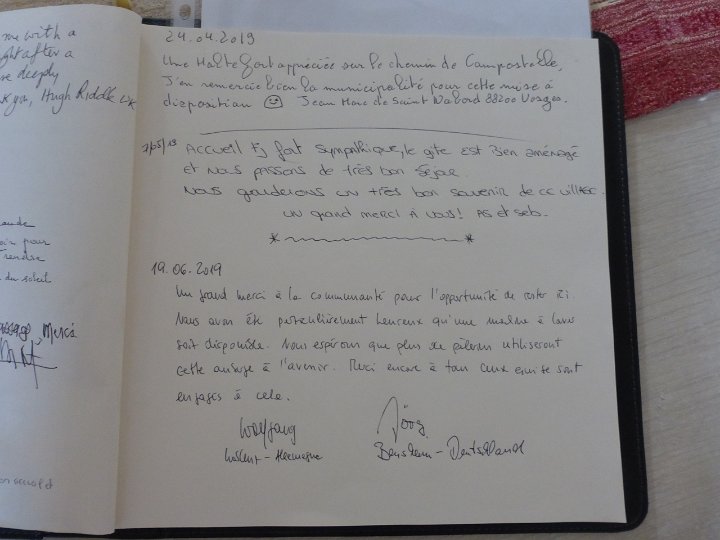 me with a
after a
deeply
you, Hugh Riddle UK
pour
du soleil
Merci
24.04.2019
Une Halte fort appréciée sur le chemin de Campostelle,
J'en remercie bien la municipalité pour cette mise à
disposition ☺ Jean Marc de Saint 88200 Vosges.
7/05/19 Accueil fort sympathique, le gîte est Bien aménagé
et Nous passons de très bon Séjour.
Nous garderons un très bon souvenir de ce village.
un grand merci à vous! AS et seb.
19.06.2019
Un grand merci à la communauté pour l'opportunité de rester ici.
Nous avons été particulièrement heureux qu'une machine à laver
soit disponible. Nous espérons que plus de pèlerins utiliseront
cette auberge à l'avenir. Merci encore à tous ceux qui se sont
engagés à cela.
Wolfgang Jörg
Allemagne Bensheim - Deutschland